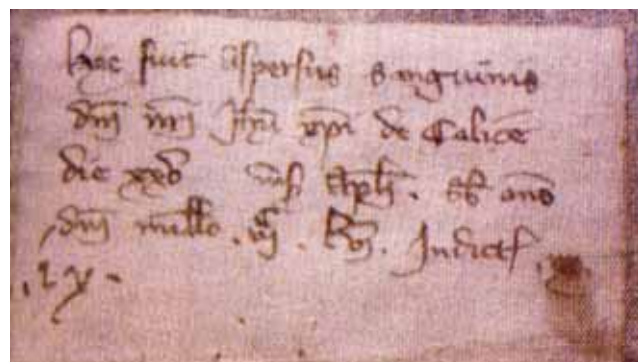 hic fuit Aspersus sanguinis
dni nri Jhu xpi de Calice
die xxv mſ Aplis . sb anno
dni millo . iijc . lvj . Indict
. ix .